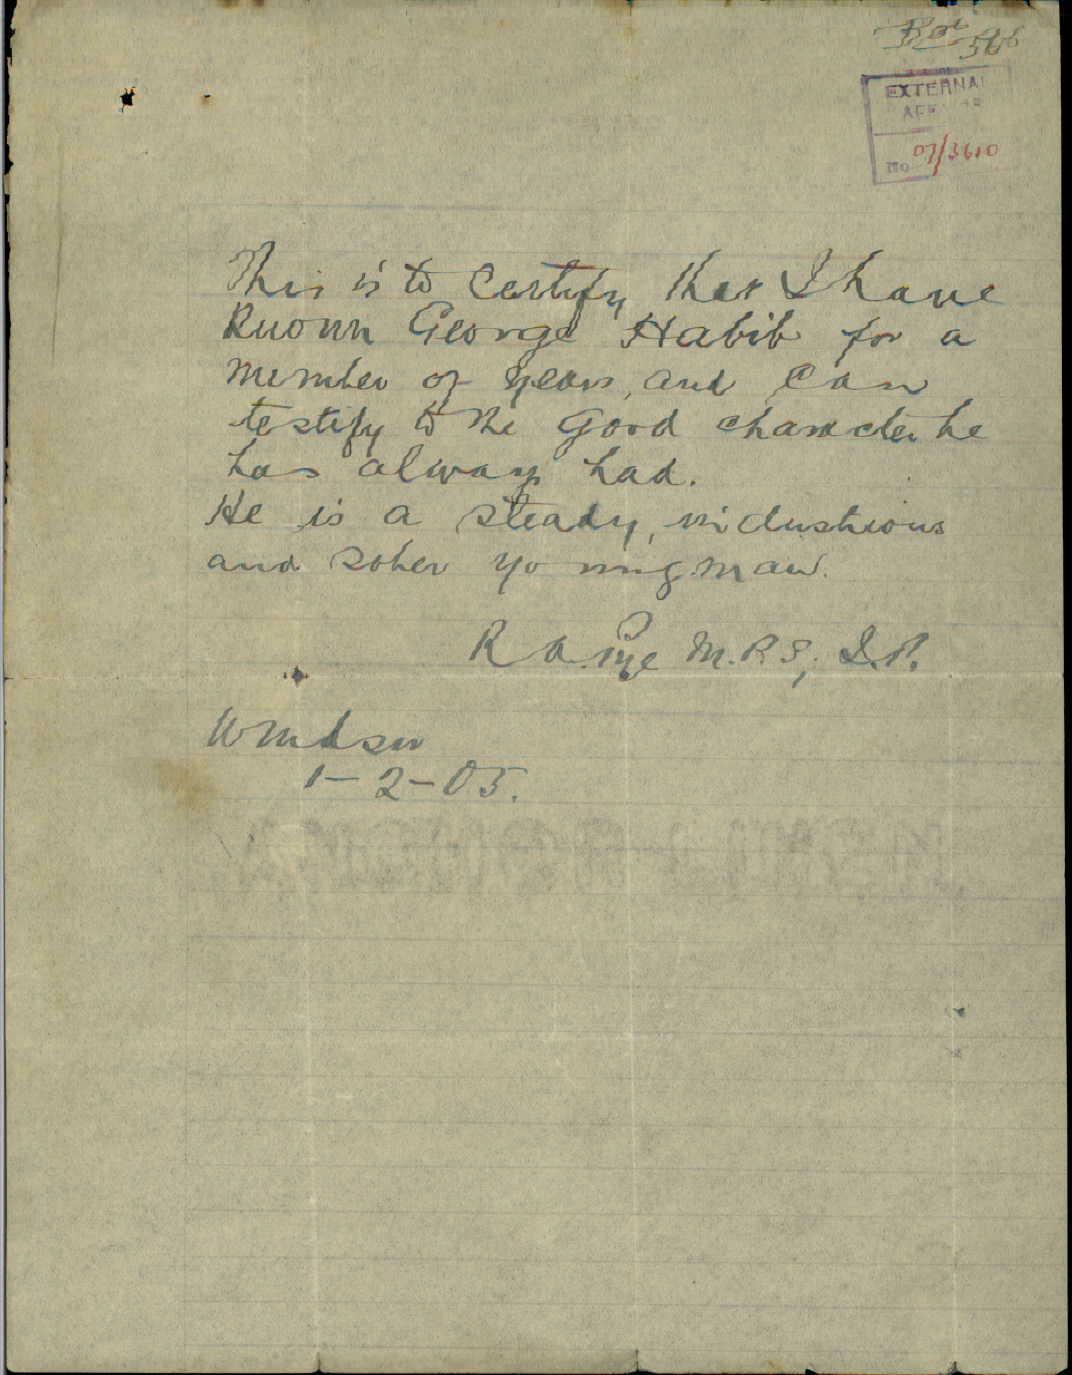 EXTERNAL
NO 07/3610
This is to certify that I have
Known George Habib for a
number of years, and can
testify to the good character he
has always had.
He is a steady, industrious
and sober young man.
M.P.S, J.P.
Windsor
1-2-05.